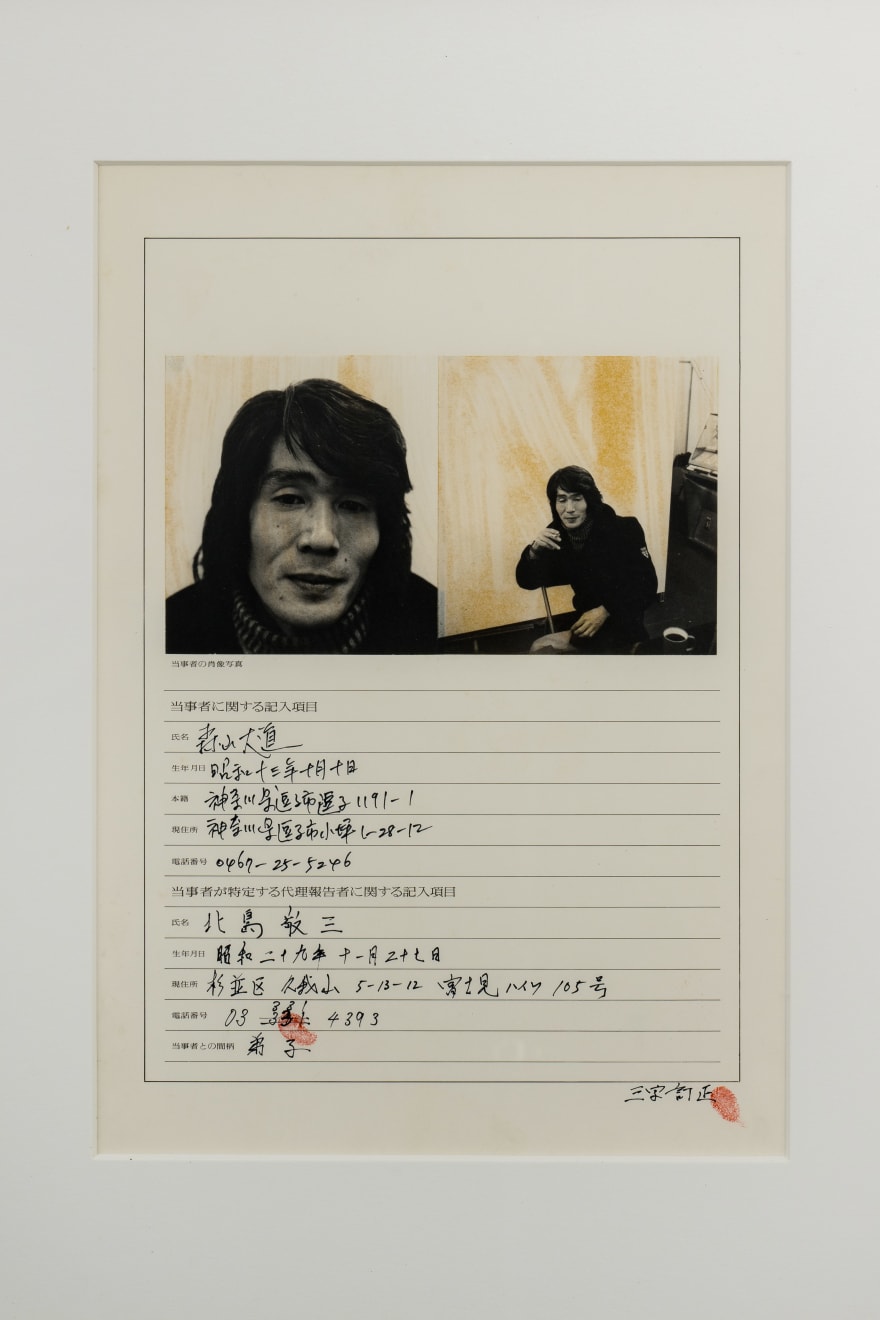 当事者の肖像写真
当事者に関する記入項目
氏名 森山大道
生年月日 昭和十三年十月十日
本籍 神奈川県逗子市逗子1191-1
現住所 神奈川県逗子市小坪6-28-12
電話番号 0467-25-5246
当事者が特定する代理報告者に関する記入項目
氏名 北島敬三
生年月日 昭和二十九年十一月二十七日
現住所 杉並区 久我山 5-13-12 富士見ハイツ 105号
電話番号 03 331 4393
当事者との間柄 弟子
三字訂正